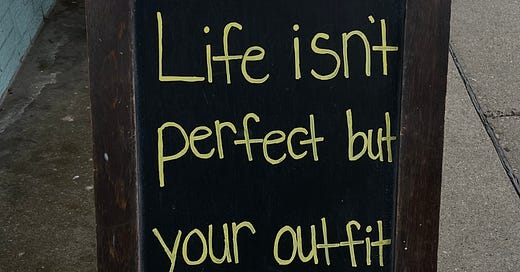 Life isn't
perfect but
your outfit